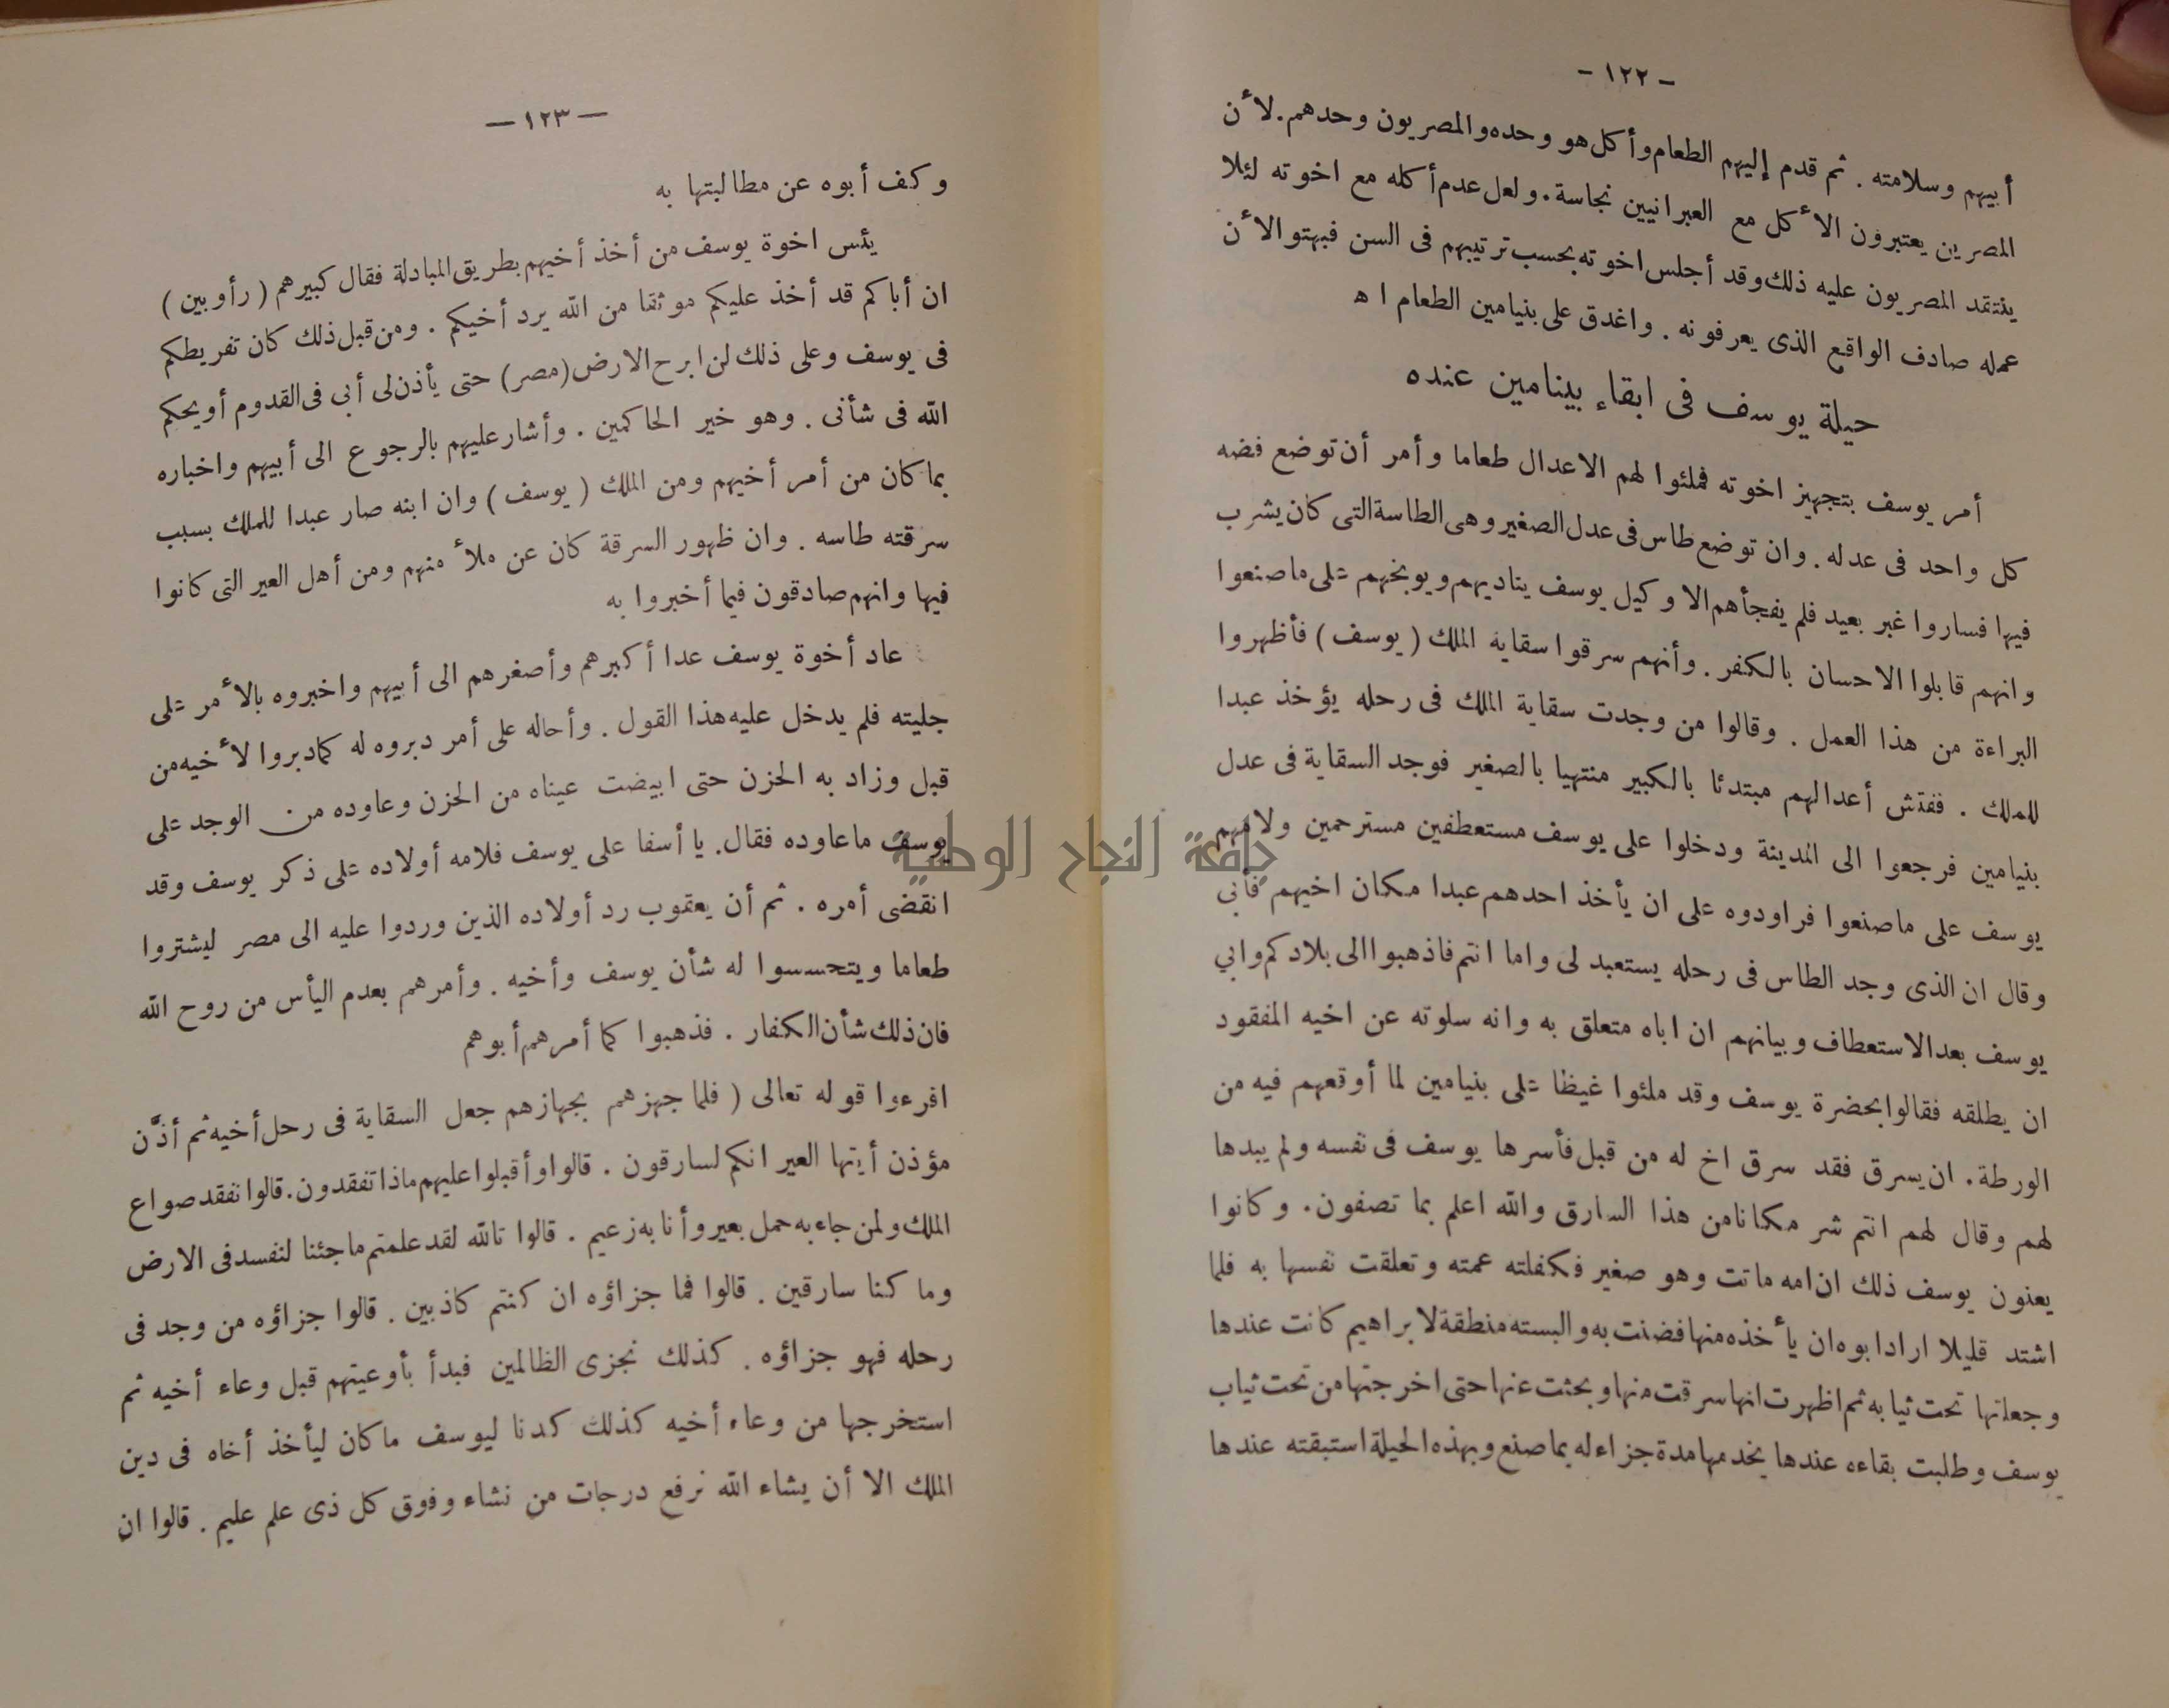 - ١٢٢ -
أبيهم وسلامته . ثم قدم إليهم الطعام وأكل هو وحده والمصريون وحدهم . لأن
المصرين يعتبرون الأكل مع العبرانيين نجاسة . ولعل عدم أكله مع اخوته لئلا
ينتقد المصريون عليه ذلك وقد أجلس اخوته بحسب ترتيبهم فى السن فبهتوا لأن
عمله صادف الواقع الذى يعرفونه . واغدق على بنيامين الطعام ا ه
حيلة يوسف فى ابقاء بينامين عنده
أمر يوسف بتجهيز اخوته فملئوا لهم الاعدال طعاما وأمر أن توضع فضه
كل واحد فى عدله . وان توضع طاس فى عدل الصغير وهى الطاسة التى كان يشرب
فيها فساروا غبر بعيد فلم يفجأهم الا وكيل يوسف يناديهم ويوبخهم على ما صنعوا
وانهم قابلوا الاحسان بالكفر . وأنهم سرقوا سقاية الملك ( يوسف ) فأظهروا
البراءة من هذا العمل . وقالوا من وجدت سقاية الملك فى رحله يؤخذ عبدا
للملك . ففتش أعدالهم مبتدئا بالكبير منتهيا بالصغير فوجد السقاية فى عدل
بنيامين فرجعوا الى المدينة ودخلوا على يوسف مستعطفين مسترحمين ولامهم
يوسف على ما صنعوا فراودوه على ان يأخذ احدهم عبدا مكان اخيهم فأبى
وقال ان الذى وجد الطاس فى رحله يستعبد لى واما انتم فاذهبوا الى بلادكم وابي
يوسف بعد الاستعطاف وبيانهم ان اباه متعلق به وانه سلوته عن اخيه المفقود
ان يطلقه فقالوا بحضرة يوسف وقد ملئوا غيظا على بنيامين لما أوقعهم فيه من
الورطة . ان يسرق فقد سرق اخ له من قبل فأسرها يوسف فى نفسه ولم يبدها
لهم وقال لهم انتم شر مكانا من هذا السارق والله اعلم بما تصفون . وكانوا
يعنون يوسف ذلك ان امه ماتت وهو صغير فكفلته عمته وتعلقت نفسها به فلما
اشتد قليلا اراد ابوه ان يأخذه منها فضنت به والبسته منطقة لابراهيم كانت عندها
وجعلتها تحت ثيابه ثم اظهرت انها سرقت منها وبحثت عنها حتى اخرجتها من تحت ثياب
يوسف وطلبت بقاءه عندها يخدمها مدة جزاء له بما صنع وبهذه الحيلة استبقته عندها
— ١٢٣ —
وكف أبوه عن مطالبتها به
يئس اخوة يوسف من أخذ أخيهم بطريق المبادلة فقال كبيرهم ( رأوبين )
ان أباكم قد أخذ عليكم موثقا من الله يرد أخيكم . ومن قبل ذلك كان تفريطكم
فى يوسف وعلى ذلك لن ابرح الارض (مصر) حتى يأذن لى أبى فى القدوم أو يحكم
الله فى شأنى . وهو خير الحاكمين . وأشار عليهم بالرجوع الى أبيهم واخباره
بما كان من أمر أخيهم ومن الملك ( يوسف ) وان ابنه صار عبدا للملك بسبب
سرقته طاسه . وان ظهور السرقة كان عن ملأ منهم ومن أهل العير التى كانوا
فيها وانهم صادقون فيما أخبروا به
عاد أخوة يوسف عدا أكبرهم وأصغرهم الى أبيهم واخبروه بالأمر على
جليته فلم يدخل عليه هذا القول . وأحاله على أمر دبروه له كما دبروا لأخيه من
قبل وزاد به الحزن حتى ابيضت عيناه من الحزن وعاوده من الوجد على
يوسف ما عاوده فقال . يا أسفا على يوسف فلامه أولاده على ذكر يوسف وقد
انقضى أمره . ثم أن يعقوب رد أولاده الذين وردوا عليه الى مصر ليشتروا
طعاما ويتحسسوا له شأن يوسف وأخيه . وأمرهم بعدم اليأس من روح الله
فان ذلك شأن الكفار . فذهبوا كما أمرهم أبوهم
اقرءوا قوله تعالى ( فلما جهزهم بجهازهم جعل السقاية فى رحل أخيه ثم أذَّن
مؤذن أيتها العير انكم لسارقون . قالوا وأقبلوا عليهم ماذا تفقدون . قالوا نفقد صواع
الملك ولمن جاء به حمل بعير وأنا به زعيم . قالوا تالله لقد علمتم ما جئنا لنفسد فى الارض
وما كنا سارقين . قالوا فما جزاؤه ان كنتم كاذبين . قالوا جزاؤه من وجد فى
رحله فهو جزاؤه . كذلك نجزى الظالمين فبدأ بأوعيتهم قبل وعاء أخيه ثم
استخرجها من وعاء أخيه كذلك كدنا ليوسف ما كان ليأخذ أخاه فى دين
الملك الا أن يشاء الله نرفع درجات من نشاء وفوق كل ذى علم عليم . قالوا ان
جامعة النجاح الوطنية